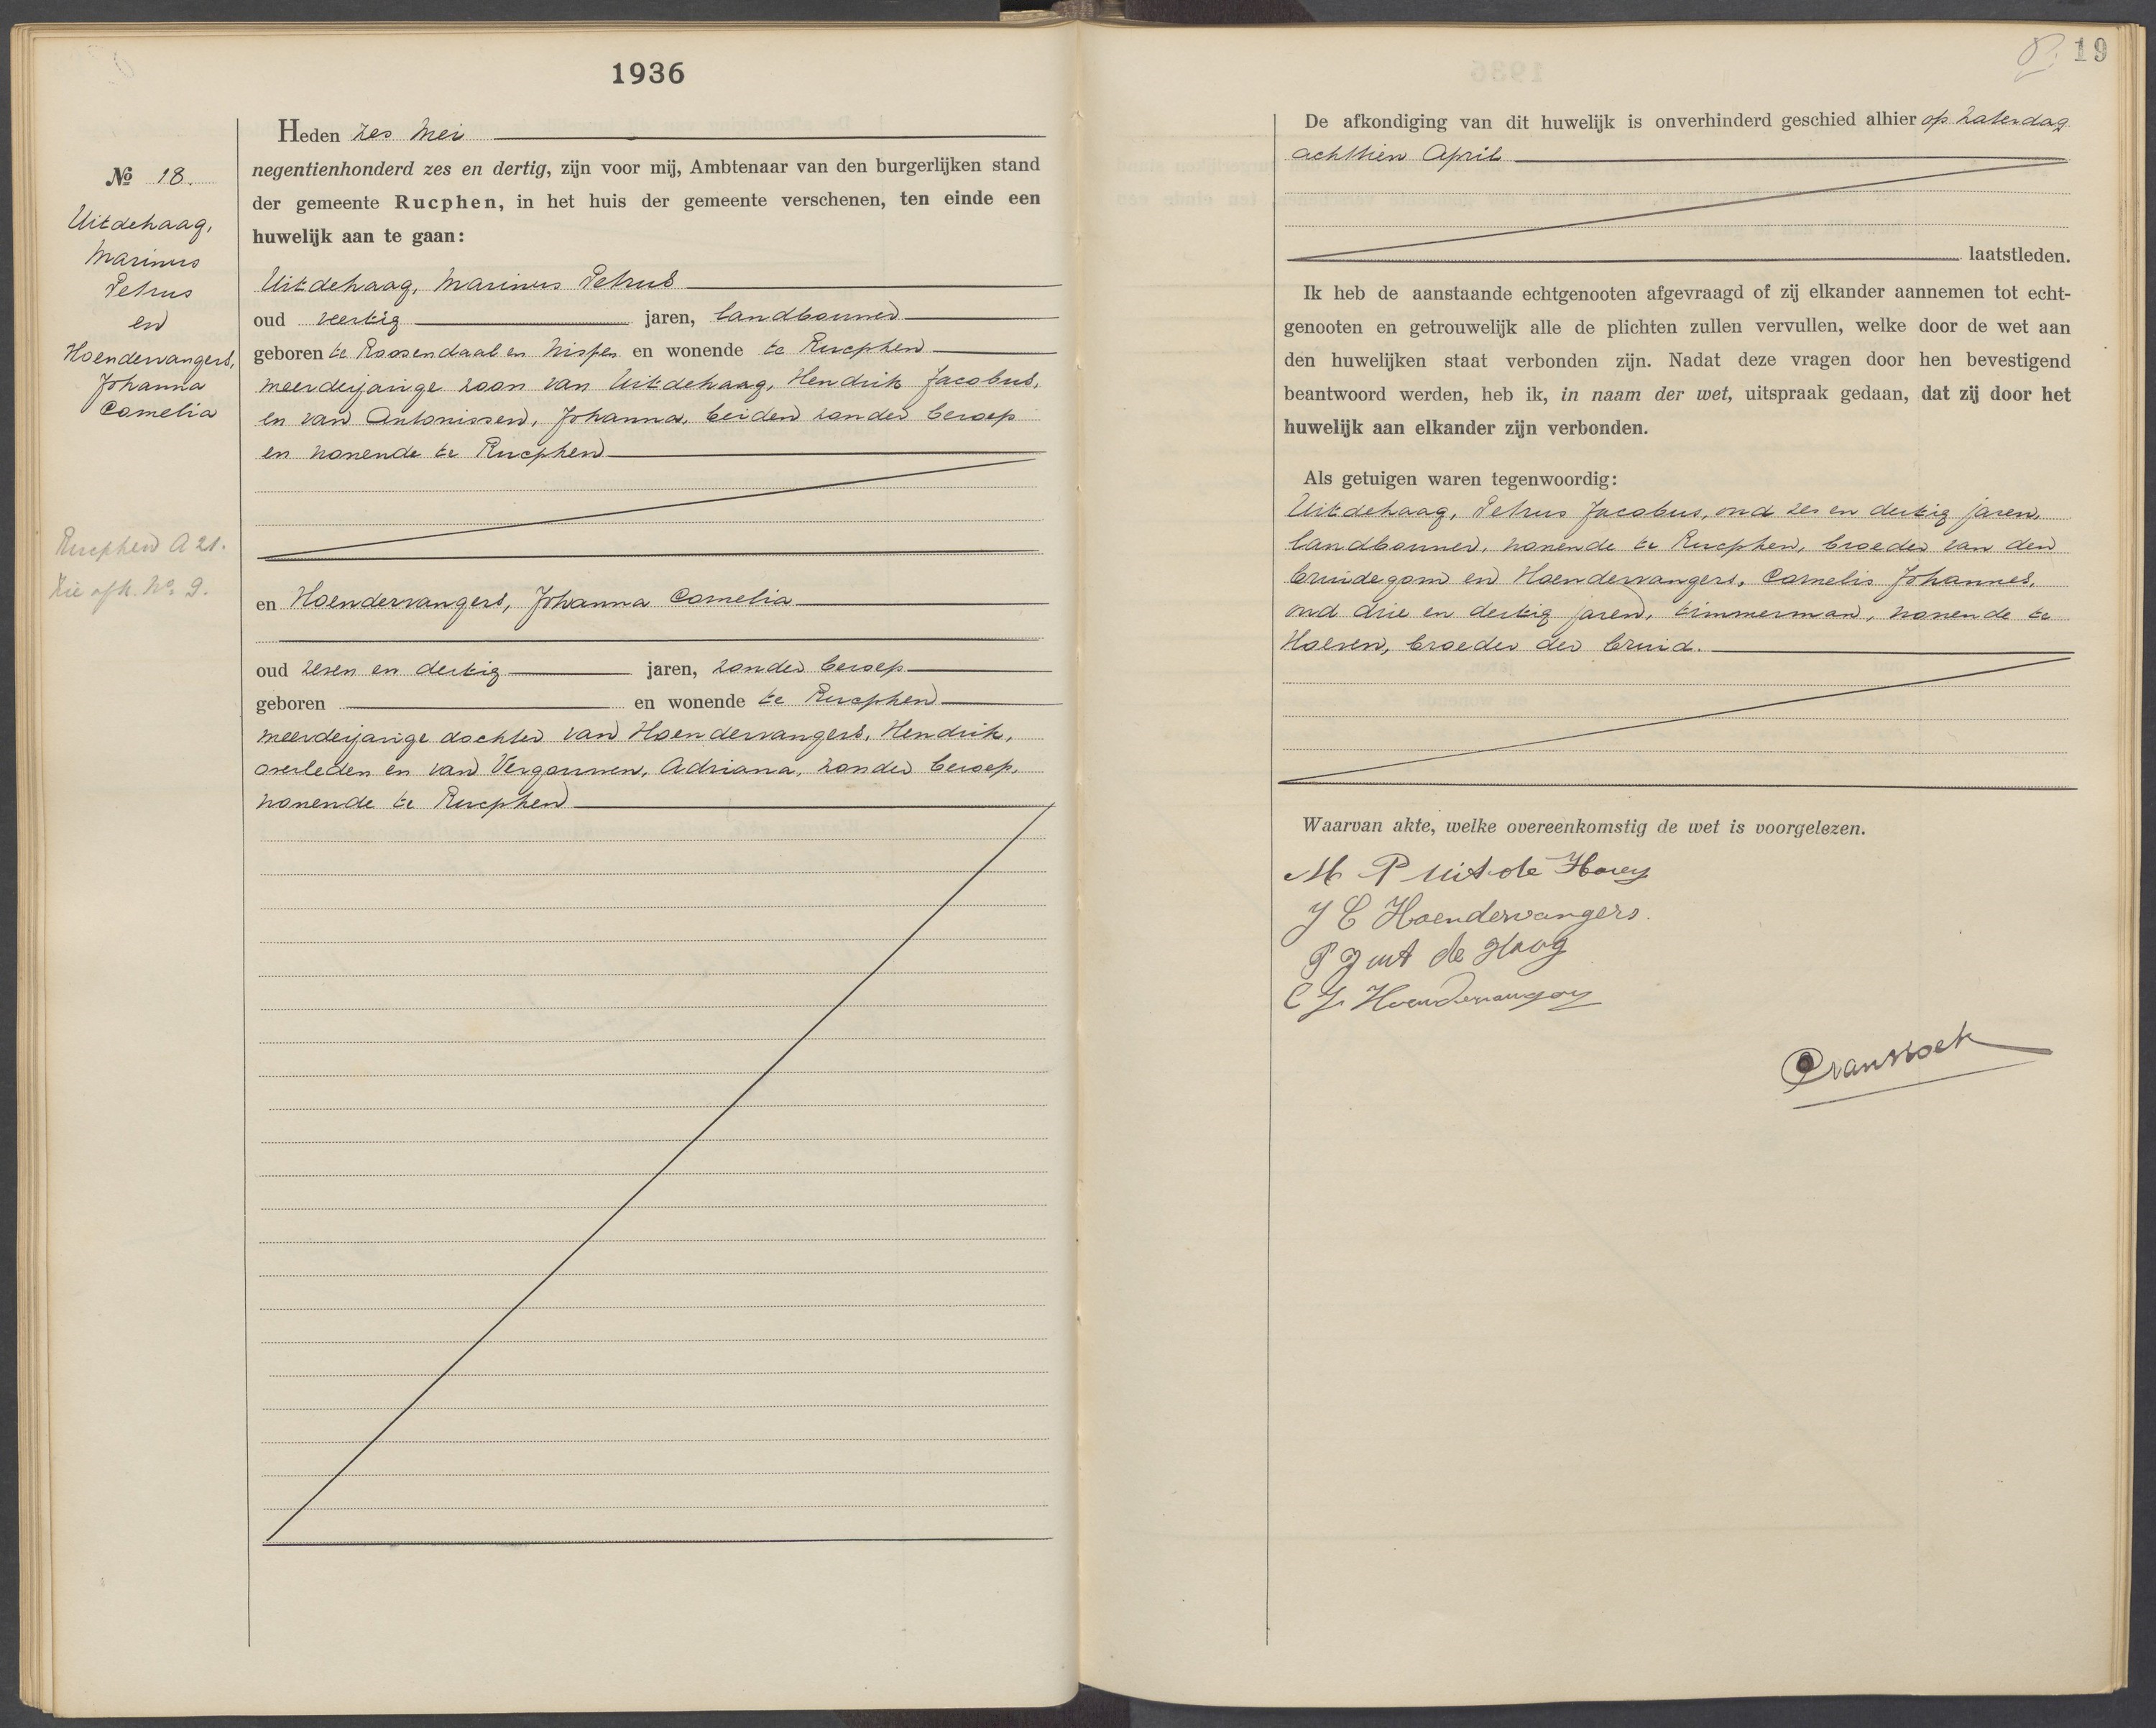 1936
№ 18.
Uitdehaag,
Marinus
Petrus
en
Hoendervangers,
Johanna
Cornelia
Rucphen A 21.
Zie afk. No. 9.
Heden zes Mei
negentienhonderd zes en dertig, zijn voor mij, Ambtenaar van den burgerlijken stand
der gemeente Rucphen, in het huis der gemeente verschenen, ten einde een
huwelijk aan te gaan:
Uitdehaag, Marinus Petrus
oud veertig jaren, landbouwer
geboren te Roosendaal en Nispen en wonende te Rucphen
meerderjarige zoon van Uitdehaag, Hendrik Jacobus,
en van Antonissen, Johanna, beiden zonder beroep
en wonende te Rucphen
en Hoendervangers, Johanna Cornelia
oud zeven en dertig jaren, zonder beroep
geboren en wonende te Rucphen
meerderjarige dochter van Hoendervangers, Hendrik,
overleden en van Vergouwen, Adriana, zonder beroep,
wonende te Rucphen
19
De afkondiging van dit huwelijk is onverhinderd geschied alhier op Zaterdag
achttien April
laatstleden.
Ik heb de aanstaande echtgenooten afgevraagd of zij elkander aannemen tot echt-
genooten en getrouwelijk alle de plichten zullen vervullen, welke door de wet aan
den huwelijken staat verbonden zijn. Nadat deze vragen door hen bevestigend
beantwoord werden, heb ik, in naam der wet, uitspraak gedaan, dat zij door het
huwelijk aan elkander zijn verbonden.
Als getuigen waren tegenwoordig:
Uitdehaag, Petrus Jacobus, oud zes en dertig jaren,
landbouwer, wonende te Rucphen, broeder van den
bruidegom en Hoendervangers, Cornelis Johannes,
oud drie en dertig jaren, timmerman, wonende te
Hoeven, broeder der bruid.
Waarvan akte, welke overeenkomstig de wet is voorgelezen.
M P uit de Haag
J C Hoendervangers.
P J uit de Haag
C J. Hoendervangers